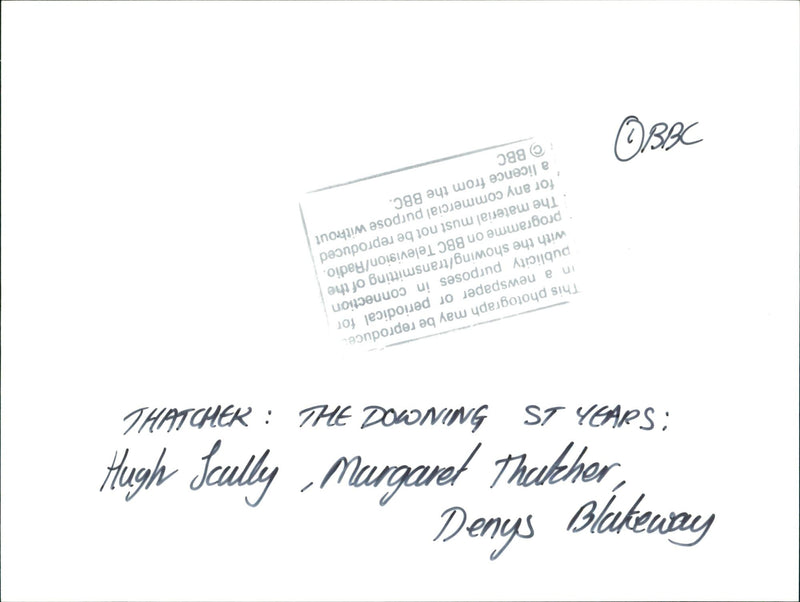 ① BBC
This photograph may be reproduced
in a newspaper or periodical for
publicity purposes in connection
with the showing/transmitting of the
programme on BBC Television/Radio.
The material must not be reproduced
for any commercial purpose without
a licence from the BBC.
© BBC
THATCHER: THE DOWNING ST YEARS:
Hugh Scully, Margaret Thatcher,
Denys Blakeway